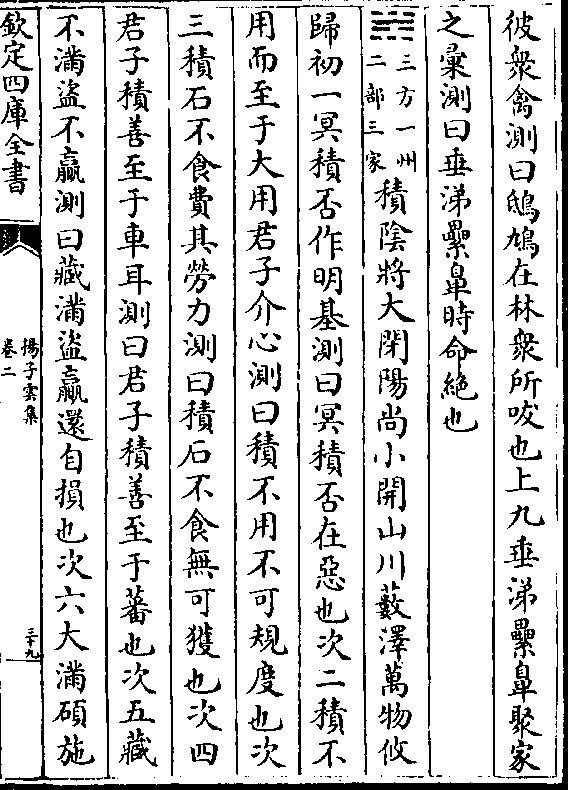 彼衆禽測曰鴟鳩在林衆所咬也上九垂涕纍鼻聚家
之彚測曰垂涕纍鼻時命絶也
三方一州
二部三家
積陰將大閉陽尚小開山川藪澤萬物攸
歸初一冥積否作明基測曰冥積否在惡也次二積不
用而至于大用君子介心測曰積不用不可規度也次
三積石不食費其勞力測曰積石不食無可獲也次四
君子積善至于車耳測曰君子積善至于蕃也次五藏
不滿盜不贏測曰藏滿盜贏還自損也次六大滿碩施
欽定四庫全書
揚子雲集
卷二
三十九